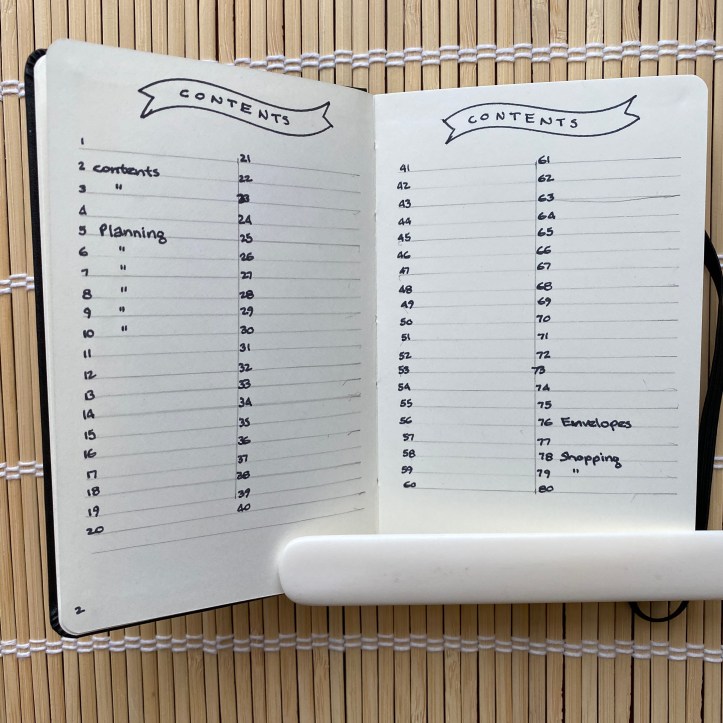 CONTENTS
1
2 contents
3 "
4
5 Planning
6 "
7 "
8 "
9 "
10 "
11
12
13
14
15
16
17
18
19
20
21
22
23
24
25
26
27
28
29
30
31
32
33
34
35
36
37
38
39
40
2
CONTENTS
41
42
43
44
45
46
47
48
49
50
51
52
53
54
55
56
57
58
59
60
61
62
63
64
65
66
67
68
69
70
71
72
73
74
75
76 Envelopes
77
78 Shopping
79 "
80